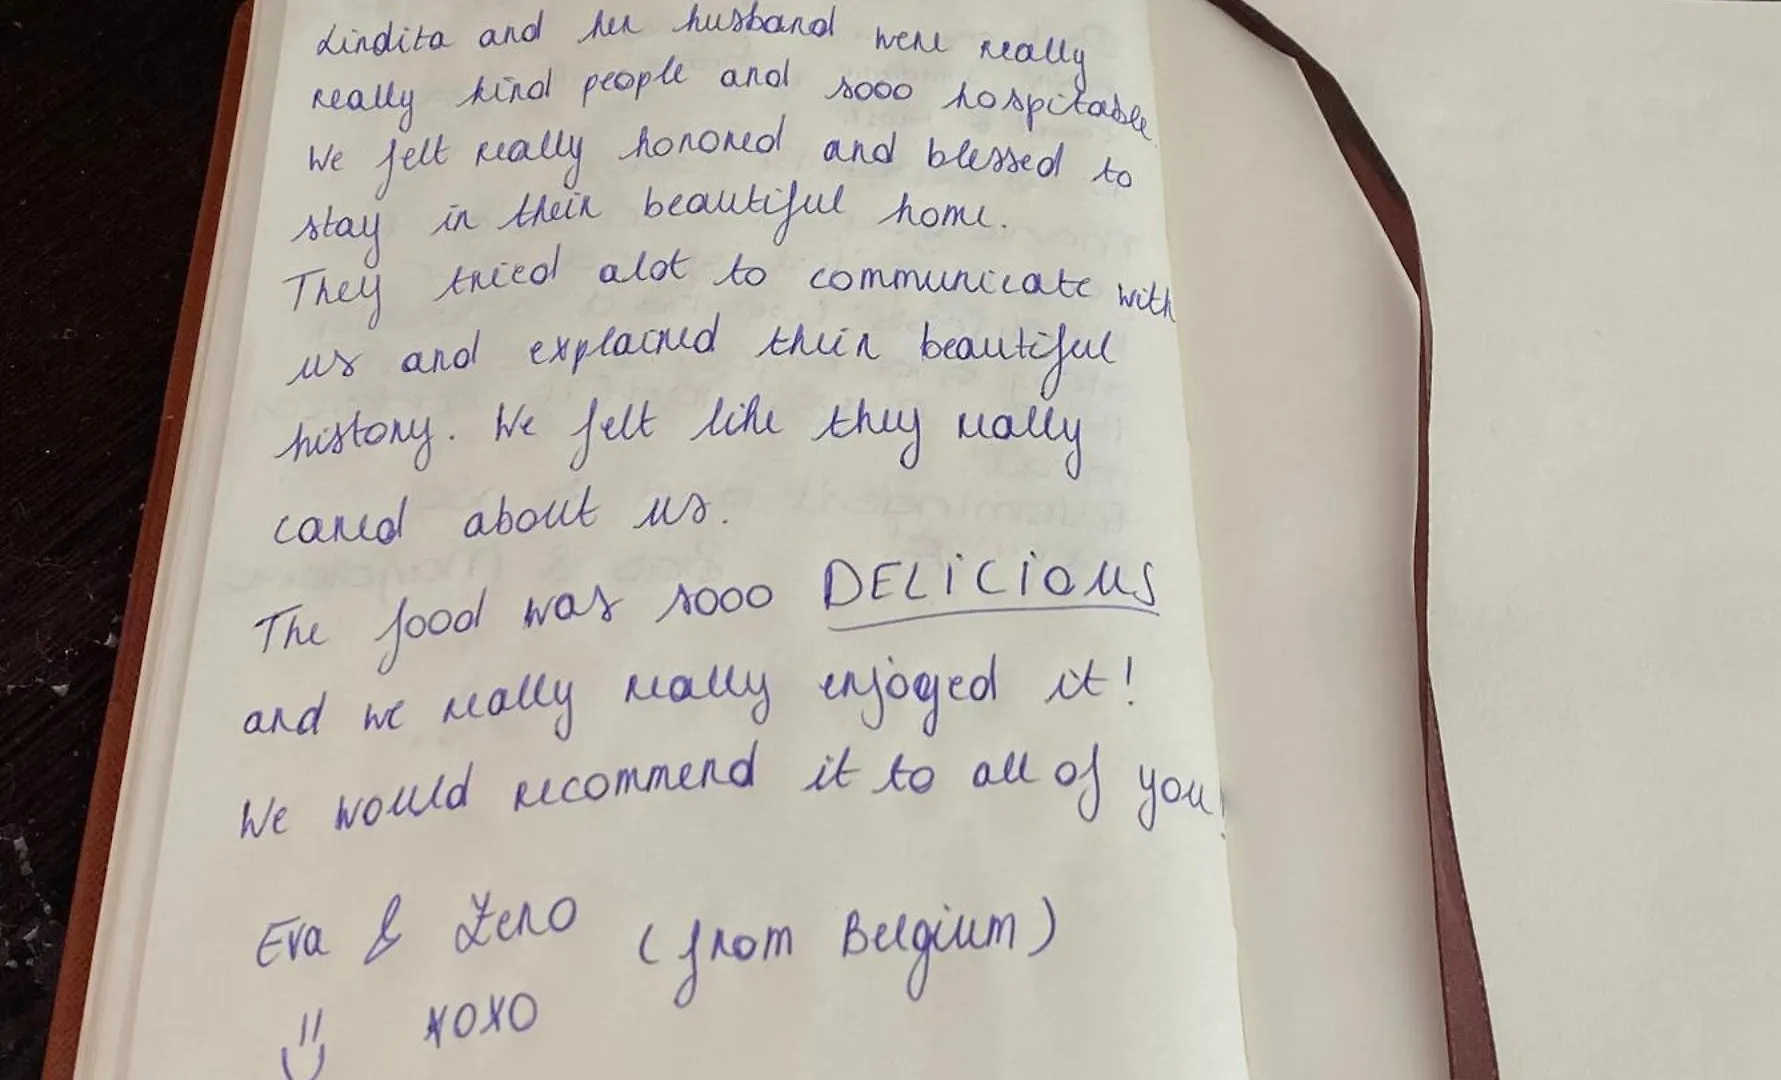 Lindita and her husband were really
really kind people and sooo hospitable
We felt really honored and blessed to
stay in their beautiful home.
They tried alot to communicate with
us and explained their beautiful
history. We felt like they really
cared about us.
The food was sooo DELiCiOUS
and we really really enjoyed it!
We would recommend it to all of you!
Eva & Zeno (from Belgium)
XOXO